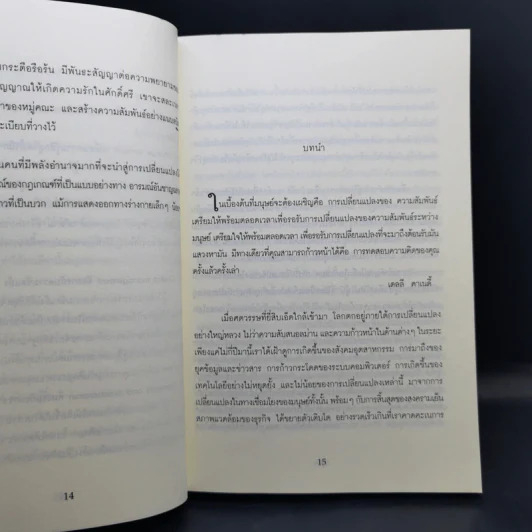 บกระตือรือร้น มีพันธะสัญญาต่อความพยายามของ
ญญาณให้เกิดความรักในศักดิ์ศรี เขาจะสละเวลา
าของหมู่คณะ และสร้างความสัมพันธ์อย่างแน่น
ะเบียบที่วางไว้
นคนที่มีพลังอำนาจมากที่จะนำสู่การเปลี่ยนแปลง
ณ์ของกฎเกณฑ์ที่เป็นแบบอย่างทาง อารมณ์อันชาญฉลาด
าวที่เป็นบวก แม้การแสดงออกทางร่างกายเล็กๆ น้อย
14
บทนำ
ในเบื้องต้นที่มนุษย์จะต้องเผชิญคือ การเปลี่ยนแปลงของ ความสัมพันธ์
เตรียมให้พร้อมตลอดเวลาเพื่อรองรับการเปลี่ยนแปลงของความสัมพันธ์ระหว่าง
มนุษย์ เตรียมใจให้พร้อมตลอดเวลา เพื่อรอรับการเปลี่ยนแปลงที่จะมาถึงต้อนรับมัน
แสวงหามัน มีทางเดียวที่คุณสามารถก้าวหน้าได้คือ การทดสอบความคิดของคุณ
ครั้งแล้วครั้งเล่า
เดอลี คาเนดี้
เมื่อศตวรรษที่ยี่สิบเอ็ดใกล้เข้ามา โลกตกอยู่ภายใต้การเปลี่ยนแปลง
อย่างใหญ่หลวง ไม่ว่าความสับสนอลม่าน และความก้าวหน้าในด้านต่างๆ ในระยะ
เพียงแค่ไม่กี่ปีมานี้เราได้เฝ้าดูการเกิดขึ้นของสังคมอุตสาหกรรม การมาถึงของ
ยุคข้อมูลและข่าวสาร การก้าวกระโดดของระบบคอมพิวเตอร์ การเกิดขึ้นของ
เทคโนโลยีอย่างไม่หยุดยั้ง และไม่น้อยของการเปลี่ยนแปลงเหล่านี้ มาจากการ
เปลี่ยนแปลงในทางเชื่อมโยงของมนุษย์ทั้งนั้น พร้อมๆ กับการสิ้นสุดของสงครามเย็น
สภาพแวดล้อมของธุรกิจ ได้ขยายตัวเติบโต อย่างรวดเร็วเกินที่เราคาดคะเนการ
15